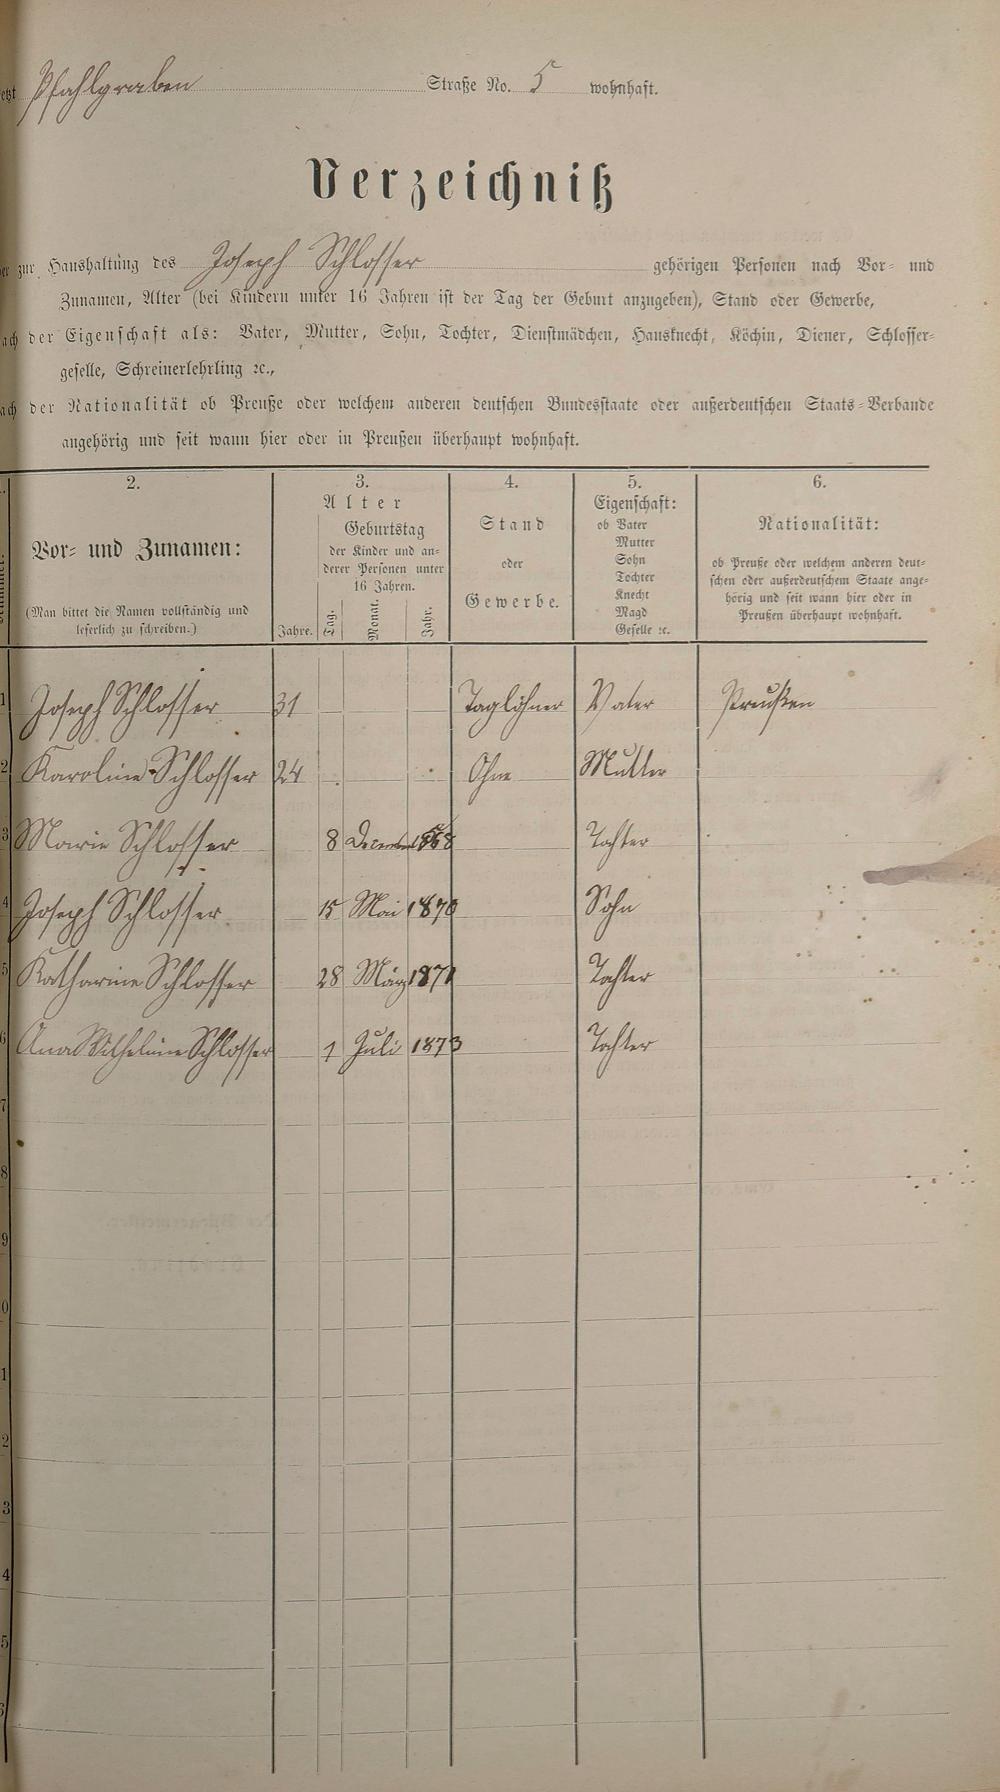 Pfahlgraben Straße No. 5 wohnhaft.
Verzeichniß
zur Haushaltung des Joseph Schlosser gehörigen Personen nach Vor- und
Zunamen, Alter (bei Kindern unter 16 Jahren ist der Tag der Geburt anzugeben), Stand oder Gewerbe,
der Eigenschaft als: Vater, Mutter, Sohn, Tochter, Dienstmädchen, Hausknecht, Köchin, Diener, Schlosser-
geselle, Schreinerlehrling ꝛc.,
der Nationalität ob Preuße oder welchem anderen deutschen Bundesstaate oder außerdeutschen Staats-Verbande
angehörig und seit wann hier oder in Preußen überhaupt wohnhaft.
2. 3. 4. 5. 6.
Vor- und Zunamen:
(Man bittet die Namen vollständig und
leserlich zu schreiben.)
Alter
Jahre.
Geburtstag
der Kinder und an-
derer Personen unter
16 Jahren.
Tag. Monat. Jahr.
Stand
oder
Gewerbe.
Eigenschaft:
ob Vater
Mutter
Sohn
Tochter
Knecht
Magd
Geselle ꝛc.
Nationalität:
ob Preuße oder welchem anderen deut-
schen oder außerdeutschem Staate ange-
hörig und seit wann hier oder in
Preußen überhaupt wohnhaft.
1 Joseph Schlosser 31 Taglöhner Vater Preußen
2 Karoline Schlosser 24 Ohne Mutter
3 Marie Schlosser 8 December 1868 Tochter
4 Joseph Schlosser 15 Mai 1870 Sohn
5 Katharine Schlosser 28 März 1871 Tochter
6 Ana Wilhelmine Schlosser 1 Juli 1873 Tochter
7
8
9
0
1
2
3
4
5